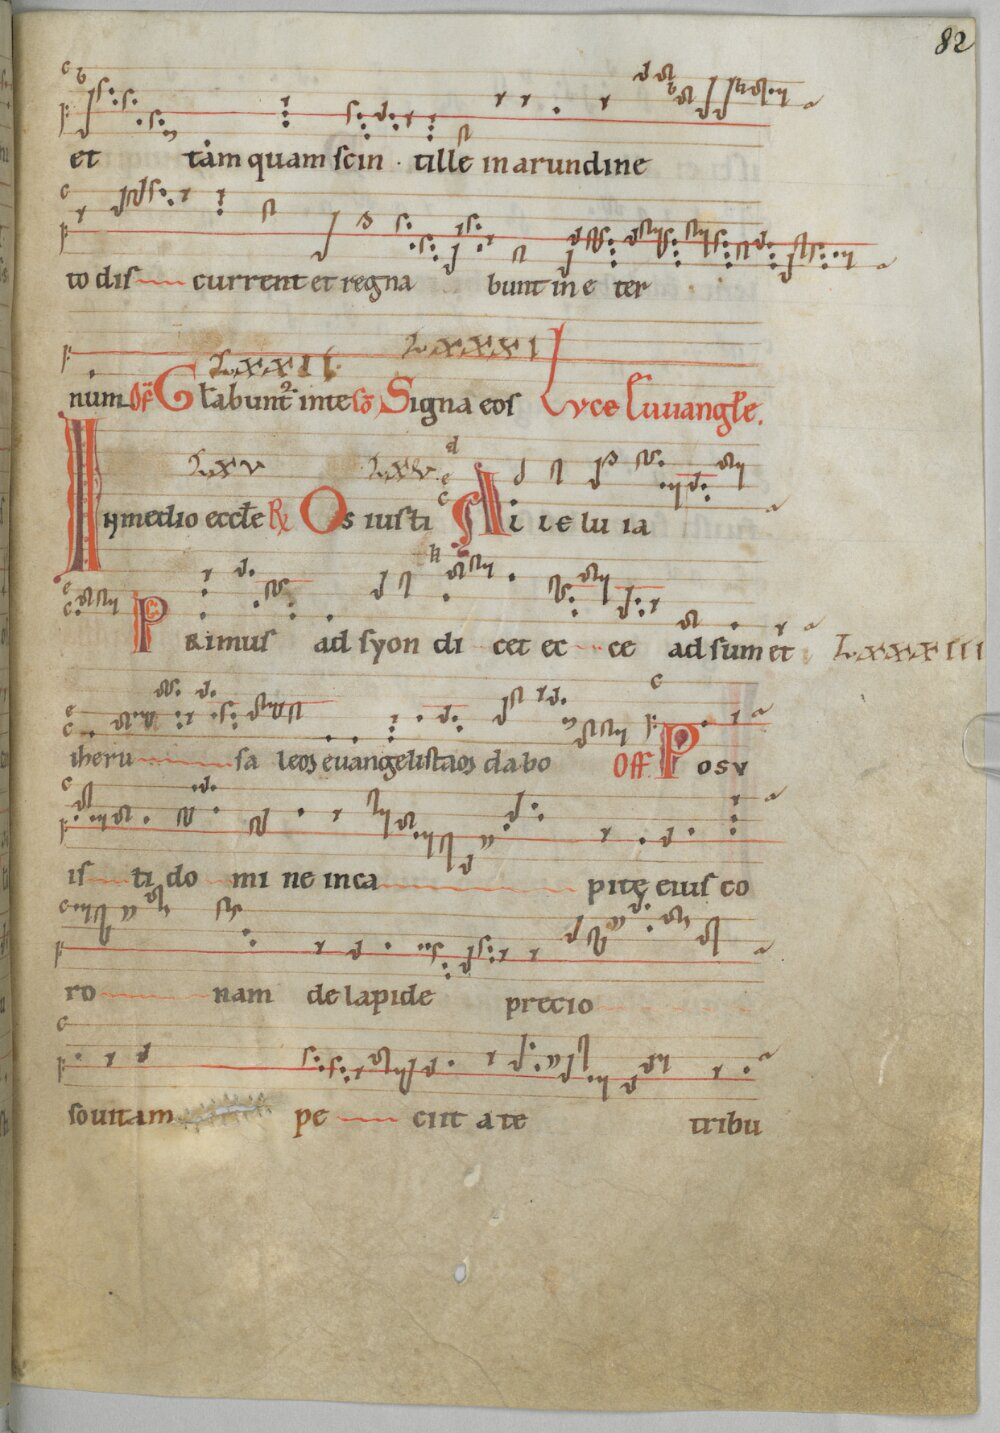 82
et tam quam scin tille in arundine
to dis current et regna bunt in e ter
LXXXI
LXXII
num Of Gtabunt inte Signa eos Lvce Euuangłe.
LXV LXV
In medio eccłe R Os iusti Al le lu ia
PRimus ad syon di cet ec ce ad sum et LXXXIII
iheru sa leos euangelistaos dabo Off Posv
is ti do mi ne in ca pite eius co
ro nam de lapide precio
so uitam pe ciit a te tribu